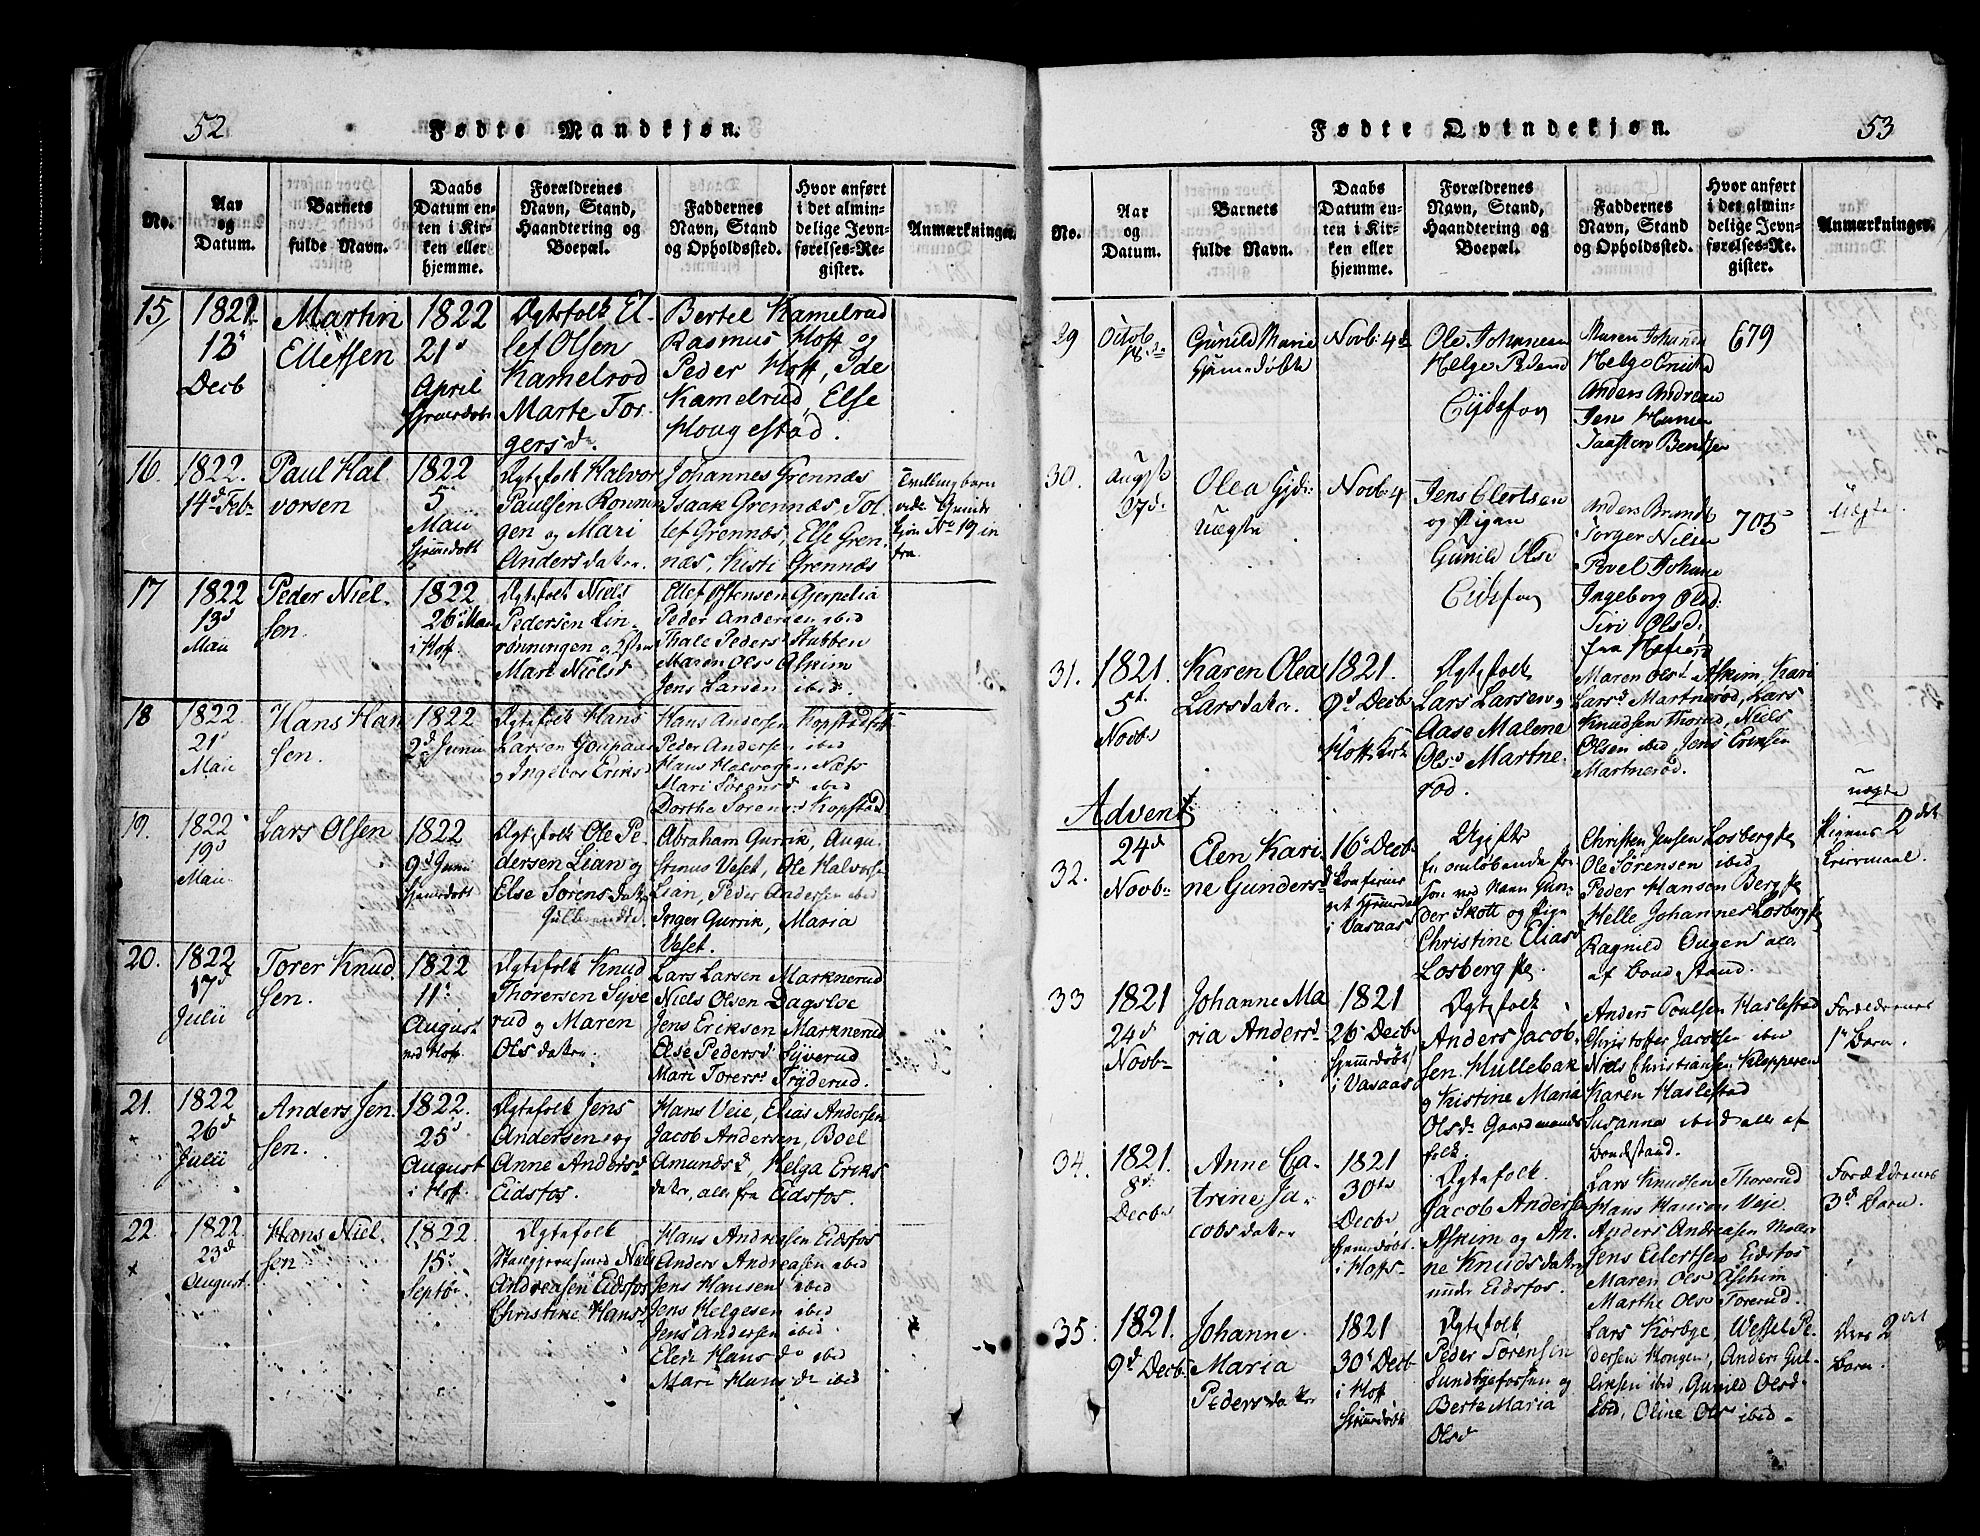 52
Fødte Mandkjøn.
No.
Aar
og
Datum.
Barnets
fulde Navn.
Daabs
Datum en-
ten i Kir-
ken eller
hjemme.
Forældrenes
Navn, Stand,
Haandtering og
Boepæl.
Faddernes
Navn, Stand
og Opholdssted.
Hvor anført
i det almin-
delige Jevn-
førelses-Re-
gister.
Anmærkninger.
15
1821
13
Decb
Martin
Ellefsen
1822
21
April
Ægtefolk El-
lef Olsen
Kamelrod
Marte Tor-
gersd
Bertel Kamelrud
Rasmus Hoff og
Peder Hoff, Ide
Kamelrud, Else
Hougestad.
16.
1822.
14d Feb
Paul Hal
vorsen
1822
5
Mai
Hjemedøbt
Ægtefolk Halvor
Paulsen Rønnin
gen og Mari
Andersdatter.
Johannes Grennæs
Isaak Grennæs Tol-
lef Grennæs, Else Gren-
næs, Kisti Grennæs
Tvillingbarn
No 19 in
fra.
17
1822
13d
Mai
Peder Niel-
sen.
1822
26 Mai
i Hoff
Ægtefolk Niels
Pedersen Lin-
rønningen
Mari Nielsd
Ellef Ostensen Gjerpelia
Peder Andersen ibid
Thale Pedersd Stubben
Maren Olsd Askim
Jens Larsen ibid.
18
1822.
21
Mai
Hans Han
sen.
1822
2d Junii
Ægtefolk Hans
Larsen
og Ingebor Eriksd
Hans Andersen Kopstad
Peder Andersen ibid
Hans Halvorsen Næss
Mari Sørensd ibid
Dorthe Torens Kopstad
19.
1822
19d
Mai.
Lars Olsen
1822
9d Junii
Hjemedøbt
Ægtefolk Ole Pe-
dersen Lian og
Else Sørensdatter
Abraham Gurrik, Augu-
stinus Veset, Ole Halvorsen
Lian, Peder Andersen ibid
Inger Gurrik, Maria
Veset.
20.
1822
17d
Julii
Torer Knud
sen.
1822
11
August
ved Hoff
Ægtefolk Knud
Thorersen Syve
rud og Maren
Olsdatter.
Lars Larsen Marknerud
Niels Olsen Dagsloe
Jens Eriksen Marknerud
Else Pedersd Syverud
Mari Torersd Tryderud.
21.
1822
26d
Julii
Anders Jen
sen.
1822.
25
August
i Hoff
Ægtefolk Jens
Andersen og
Anne Andersd
Eidsfos.
Hans Veie, Elias Andersen
Jacob Andersen, Boel
Amundsd, Helga Eriks
datter, alle fra Eidsfos.
22.
1822.
23d
August
Hans Niel
sen
1822.
15
Septbr
Ægtefolk
Niels
Andreasen Eidsfos
Christine Hansd
Hans Andreasen Eidsfos
Anders Andreasen ibid
Jens Hansen ibid
Jens Helgesen ibid
Jens Andersen ibid
Elen Hansd ibid
Mari Hansd ibid
Fødte Qvindekjøn.
53
No.
Aar
og
Datum.
Barnets
fulde Navn.
Daabs
Datum en-
ten i Kir-
ken eller
hjemme.
Forældrenes
Navn, Stand,
Haandtering og
Boepæl.
Faddernes
Navn, Stand
og Opholdssted.
Hvor anført
i det almin-
delige Jevn-
førelses-Re-
gister.
Anmærkninger.
29
Octob
18
Gunild Marie
Hjemedøbte
Novb: 4d
Ole Johannesen
Helge Pedersd
Eydsfoes
Maren Johansd
Helge
Anders Andreasen
Jens Hansen
Taasten Bentsen
679
30.
Augst
Olea
uægte
Novb: 4
Jens Elertsen
og Pigen
Gunild Olsd
Eidsfos
Anders Brandt
Torger Nilsen
Povel Johans
Ingeborg Olsd:
Siri Olsd:
fra
705
Uægte.
31.
1821.
5t
Novbr
Karen Olea
Larsdatter.
1821.
9d Decb
Hoff Kirke
Ægtefolk
Lars Larsen og
Aase Malene
Olsd Martne-
rød.
Maren Olsd Askim, Kari
Larsd Martnerød, Lars
Knudsen Thorud, Niels
Olsen ibid Jens Eriksen
Martnerød.
Advent
32.
24d
Novbr
Elen Kari-
ne Gundersd
16 Decb
i Vasaas
Ugifte
En omløbende
Gun-
der Skott og Pige
Christine Eliasd
Losberg
Christen Jensen Losberg
Ole Sørensen ibid
Peder Hanson Berg
Helle Johannes Losberg
Ragnild Ougen alle
af Bondstand.
uægte
Pigens 2det
Leiermaal.
33
1821
24d
Novbr
Johanne Ma
ria Andersd
1821
26 Decb
Hjemedøbt
i Vasaas
Ægtefolk
Anders Jacob-
sen Hullebak
og Kistine Maria
Olsd Gaardmands
folk.
Anders Poulsen Haslestad
Christoffer Jacobsen ibid
Niels Christiansen Klopperen
Karen Haslestad
Susanna ibid alle af
Bondestand.
Forældrenes
1te Barn.
34.
1821.
8d
Decbr
Anne Ca-
trine Ja-
cobsdatter
1821
30te
Decbr
Hjemedøbt
i Hoffs
Ægtefolk
Jacob Andersen
Askim og An-
ne Knudsdatter
under Eidsfos.
Lars Knudsen Thorerud
Hans Hanson Veie
Anders Andreasen Moller
Jens Eilertsen Eidsfos
Maren Olsd Aschim
Marthe Olsd Torerud.
Forældrenes
3d Barn.
35.
1821.
9d Decb
Johanne
Maria
Pedersdatter
1821
30 Decb
i Hoff
Hjemedøbt
Ægtefolk
Peder Torensen
Sundbyefossen og
Berte Maria
Olsd
Lars Kørbye, Wessel Pe-
dersen Hongen, Anders Gul-
liksen ibid, Gunild Olsd
ibid, Oline Olsd ibid.
deres 2det
Barn.